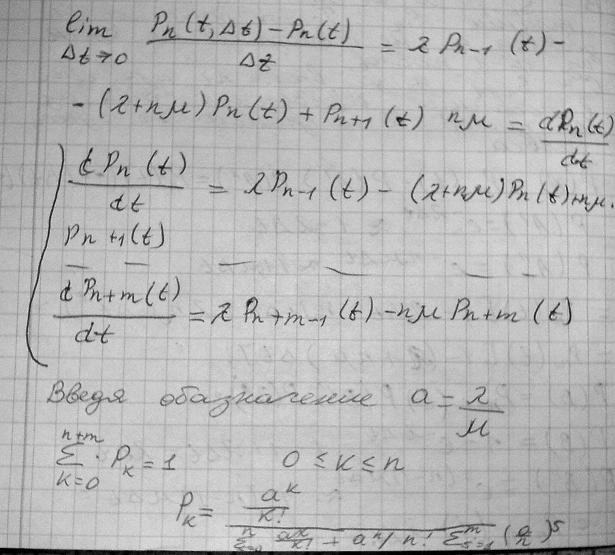 lim Δt→0 Pn(t, Δt) − Pn(t) / Δt = λ Pn−1 (t) −
− (λ+nμ) Pn(t) + Pn+1 (t) nμ = dPn(t) / dt
d Pn (t) / dt = λ Pn−1 (t) − (λ+nμ) Pn(t) + nμ·
Pn+1(t)
— — — — —
d Pn+m(t) / dt = λ Pn+m−1 (t) − nμ Pn+m (t)
Введя обозначение a = λ / μ
Σ k=0 n+m Pk = 1 0 ≤ k ≤ n
Pk = a^k / k! / Σ n a^k / k! + a^n / n! Σ s=1 m (a/n)^s